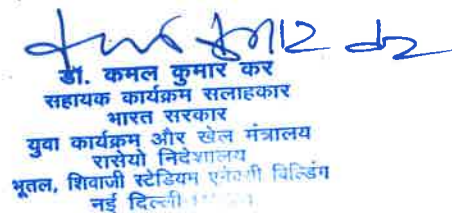 कमल कुमार कर
डॉ. कमल कुमार कर
सहायक कार्यक्रम सलाहकार
भारत सरकार
युवा कार्यक्रम और खेल मंत्रालय
रासेयो निदेशालय
भूतल, शिवाजी स्टेडियम एनेक्सी बिल्डिंग
नई दिल्ली